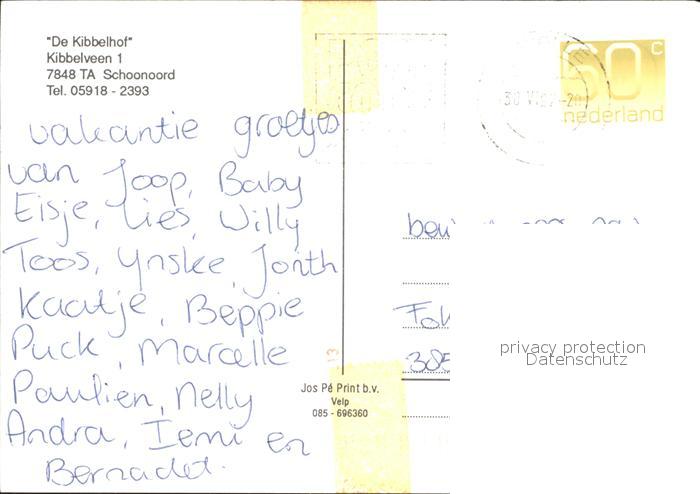 "De Kibbelhof"
Kibbelveen 1
7848 TA Schoonoord
Tel. 05918 - 2393
vakantie groetjes
van Joop, Baby
Eisje, Lies, Willy
Toos, Ynske, Jonth
Kaatje, Beppie
Puck, Marcelle
Paulien, Nelly
Andra, Iemi en
Bernadet.
60 c
nederland
385
privacy protection
Datenschutz
13
Jos Pé Print b.v.
Velp
085 - 696360